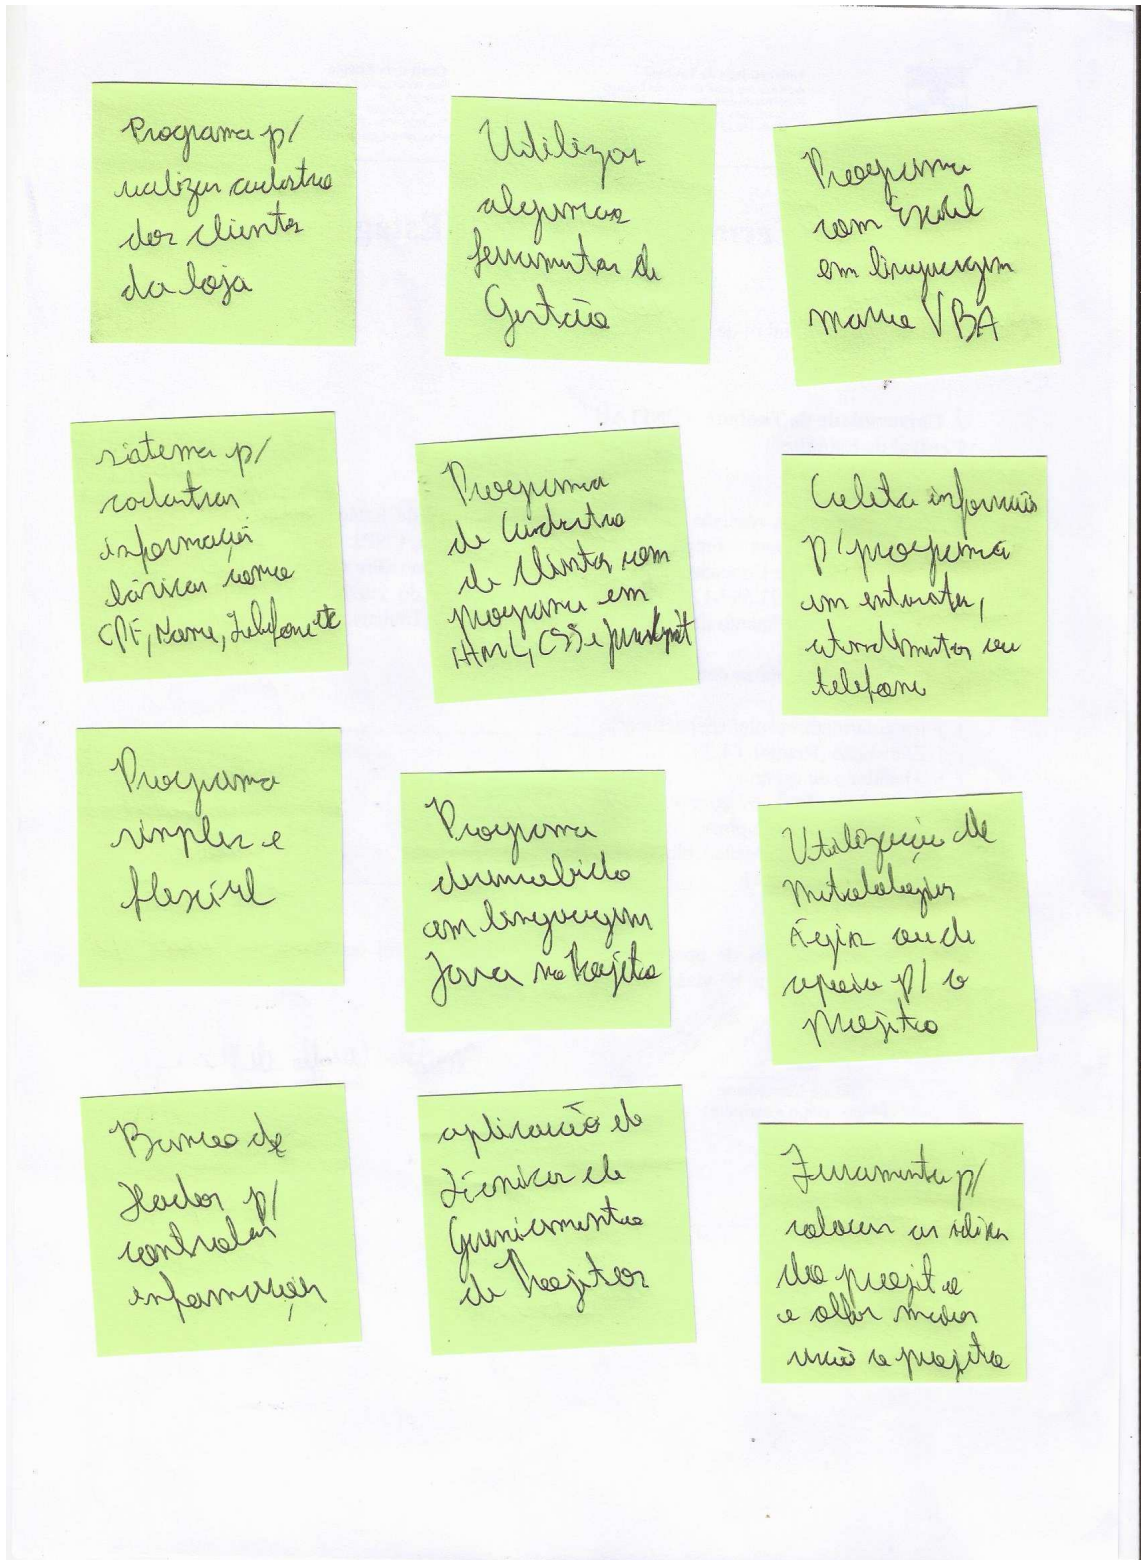 Programa p/
realizar cadastro
dos clientes
da loja
Utilizar
algumas
ferramentas de
Gestão
Programa
com Excel
em linguagem
macro VBA
sistema p/
cadastrar
informações
básicas como
CPF, Nome, Telefone etc
Programa
de Cadastro
de Clientes com
programa em
HTML, CSS e JavaScript
Coleta informações
p/ programa
em entrevistas,
atendimentos ou
telefone
Programa
simples e
flexível
Programa
desenvolvido
em linguagem
Java no Projeto
Utilização de
Metodologias
Ágeis
apoio p/ o
projeto
Banco de
Dados p/
controlar
informações
aplicação de
Técnicas de
Gerenciamento
de Projetos
Ferramenta p/
colocar as ideias
do projeto
e
o projeto